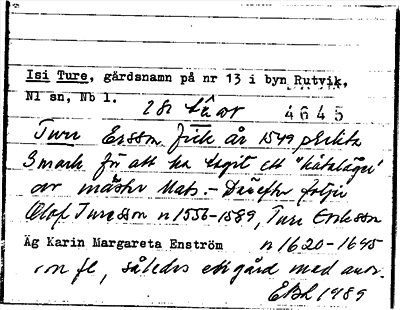 Isi Ture, gärdsnamn på nr 13 i byn Rutvik,
Nl sn, Nb l.
4645
Ture Ersson fick år 1549 plikta
3 mark för att ha tagit ett "kåtaläger"
av mäster Mats. - Därefter följer
Olof Turesson n 1556-1589, Ture Eriksson
Äg Karin Margareta Enström n 1620-1645
m fl, således en gård med anor.
EBL 1989